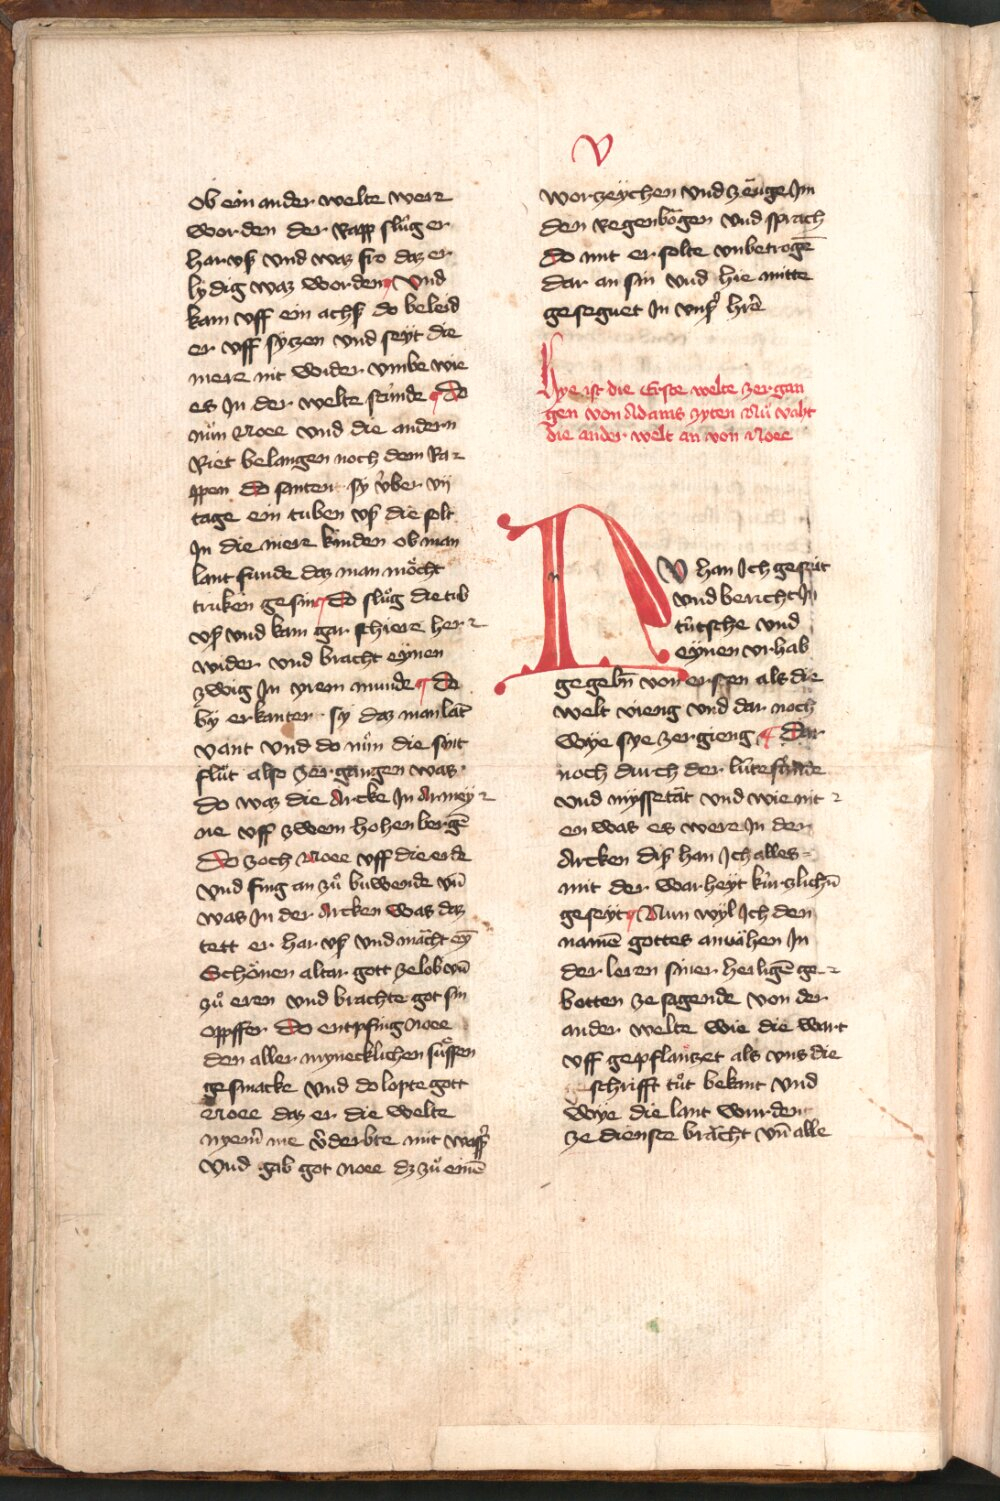 V
ob ein ander welte were
worden der Rapp flůg er
har vß und waz fro daz er
lydig waz worden Vnd
kam vff ein achß do beleib
er vff sytzen vnd seyt die
mere nit wider vmbe wie
es In der welte stůnde Do
nůn Noee vnd die andern
Riet belangen noch dem Ra-
ppen do santen sy v̊ber vij
tage ein tuben vß die solt
In die mere kůnden ob man
lant funde daz man möcht
truken gesin Do flůg die tub
vß vnd kam gar schiere her-
wider vnd bracht eynen
zwig In yrem munde Do
by erkanten sy daz man lāt
vant vnd do nůn die sint
flůt also zergangen was
do waz die Arcke In Armey-
ne vff zwein hohen bergē
Do zoch Noee vff die erde
vnd fing an zů buwende vn̄
was In der Arcken was daz
tett er har vß vnd mācht eȳ
Schönen altar gott ze lob vn̄
zů eren vnd brachte got sin
oppffer Do entpfing Noee
den aller mynecklichen sůssen
gesmacke vnd do lopte gott
Noee daz er die welte
nyem̄ me v̓derbte mit wasß̓
Vnd gab got Noee dz zů einē
worzeychen vnd zeuge Im
den Regenbögen vnd sprach
Do mit er solte vnbetrogē
dar an sin vnd hie mitte
geseguet In vnß̓ hr̄e
Hye ist die Erste welte zergan
gen von Adams zyten Nů vaht
die ander welt an von Noee
NV han Ich geseit
vnd bericht In
tůtsche vnd
eynen vrhab
gegebn̄ von ersten als die
welt vieng vnd dar noch
wye sye zergieng Dar
noch durch der lůte sůnde
vnd myssetāt vnd wie nit-
en was es were In der
Arcken diß han Ich alles-
mit der warheyt kůrzlichn̄
geseyt Nun wyl Ich den
namē gottes anvāhen In
der leren siner heiligē ge-
botten ze sagende von der
ander welte wie die wart
vff gepflanzet als vns die
schrifft tůt bekant vnd
wye die lant wurden
ze dienste brācht vn̄ alle